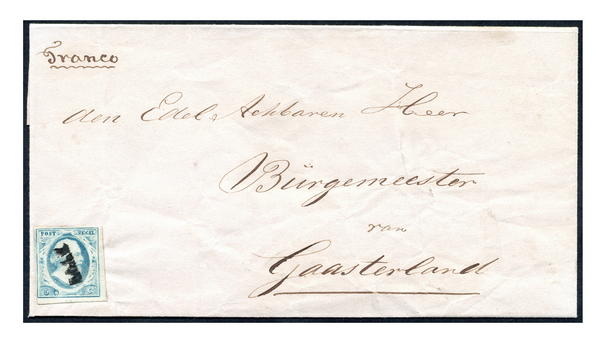 Franco
den Edel Achbaren Heer
Bürgemeester
van
Gaasterland
POST ZEGEL